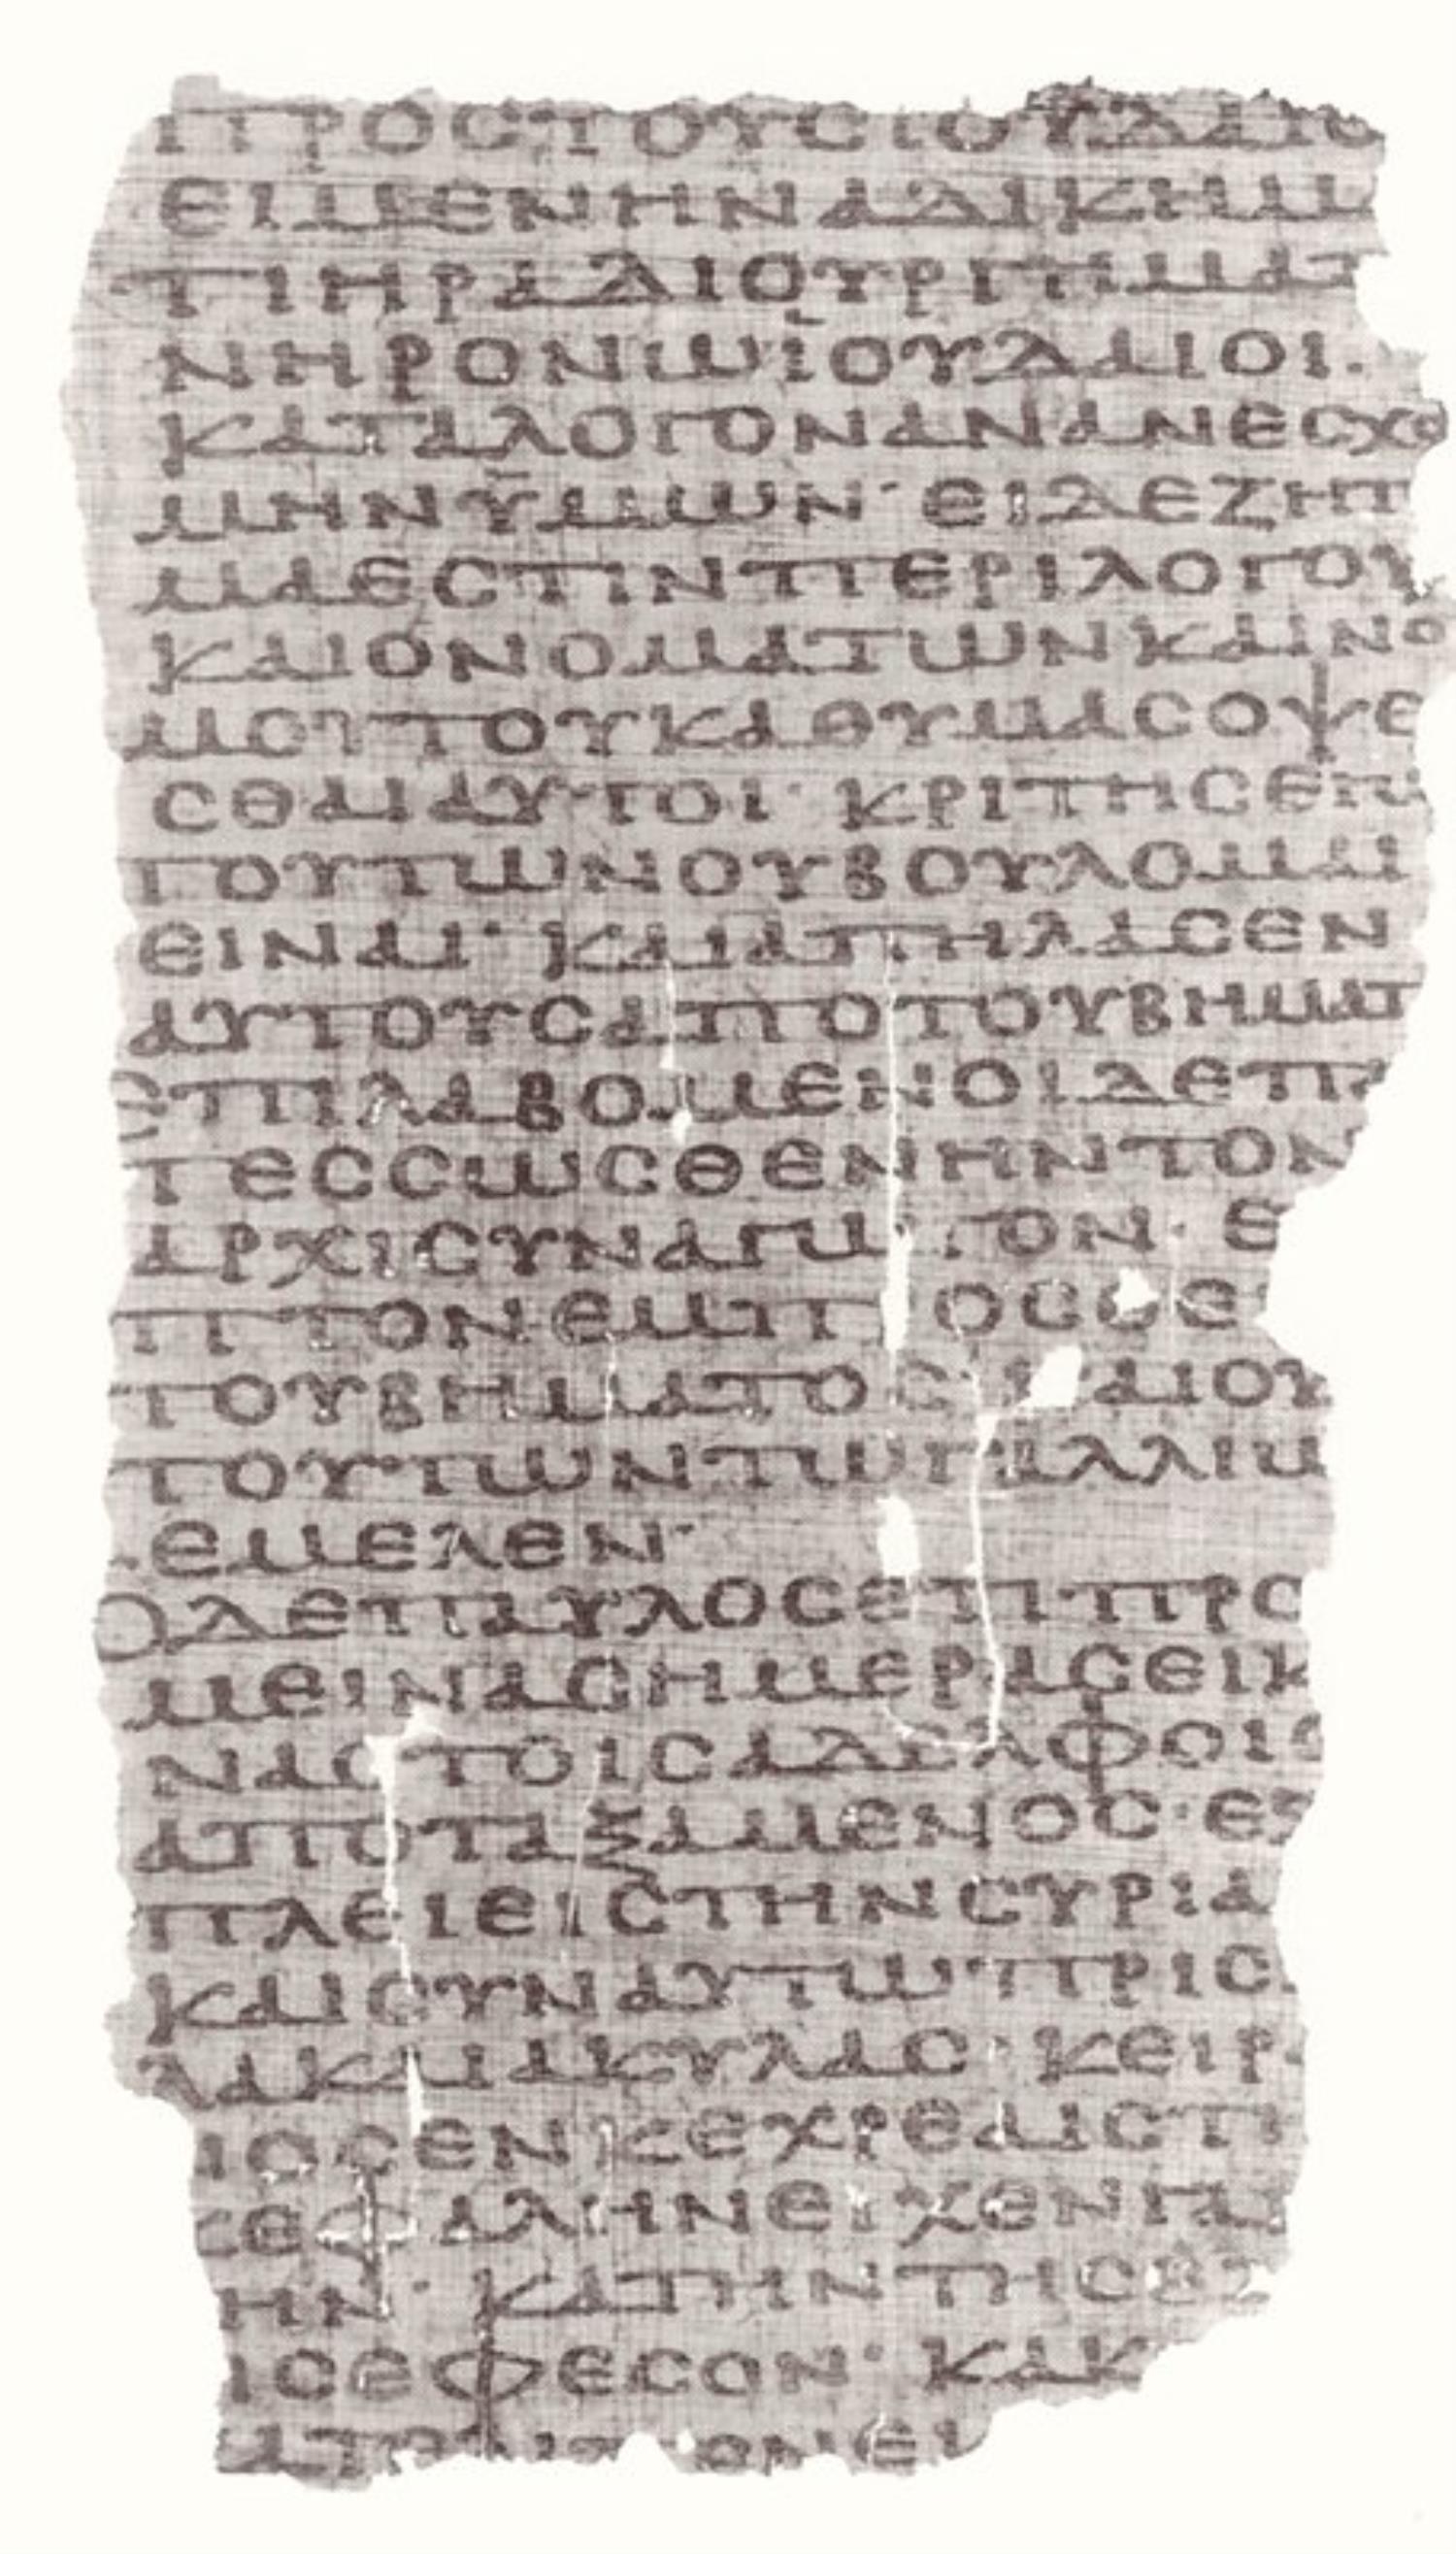 ΠΡΟСΤΟΥСΙΟΥΔΑΙΟ
ΕΙΜΕΝΗΝΑΔΙΚΗΜ
ΤΙΗΡΑΔΙΟΥΡΓΗΜΑΤ
ΝΗΡΟΝΩΪΟΥΔΑΙΟΙ.
ΚΑΤΑΛΟΓΟΝΑΝΑΝΕСΧΟ
ΜΗΝΫΜΩΝ· ΕΙΔΕΖΗΤ
ΜΑΕСΤΙΝΠΕΡΙΛΟΓΟΥ
ΚΑΙΟΝΟΜΑΤΩΝΚΑΙΝΟ
ΜΟΥΤΟΥΚΑΘΥΜΑСΟΨΕ
СΘΑΙΑΥΤΟΙ· ΚΡΙΤΗСΕΓΩ
ΤΟΥΤΩΝΟΥΒΟΥΛΟΜΑΙ
ΕΙΝΑΙ· ΚΑΙΑΠΗΛΑСΕΝ
ΑΥΤΟΥСΑΠΟΤΟΥΒΗΜΑΤ
ΕΠΙΛΑΒΟΜΕΝΟΙΔΕΠΑ
ΤΕССΩСΘΕΝΗΝΤΟΝ
ΑΡΧΙСΥΝΑΓΩ ΓΟΝ· Ε
ΠΤΟΝΕΜΠ ΟСΘΕ
ΤΟΥΒΗΜΑΤΟС ΑΙΟΥ
ΤΟΥΤΩΝΤΩΓΑΛΛΙΩ
ΕΜΕΛΕΝ·
ΟΔΕΠΑΥΛΟСΕΤΙΠΡΟ
ΜΕΙΝΑСΗΜΕΡΑСΕΙΚ
ΝΑСΤΟΙСΑΔΕΛΦΟΙС
ΑΠΟΤΑΞΑΜΕΝΟС·ΕΞ
ΠΛΕΙΕΙСΤΗΝСΥΡΙΑ
ΚΑΙСΥΝΑΥΤΩΠΡΙС
ΛΑΚΑΙΑΚΥΛΑС· ΚΕΙΡ
ΟСΕΝΚΕΧΡΕΑΙСΤΗ
ΚΕΦΑΛΗΝΕΙΧΕΝΓΑ
ΗΝ· ΚΑΤΗΝΤΗСΕ
ΙСΕΦΕСΟΝ· ΚΑΚ